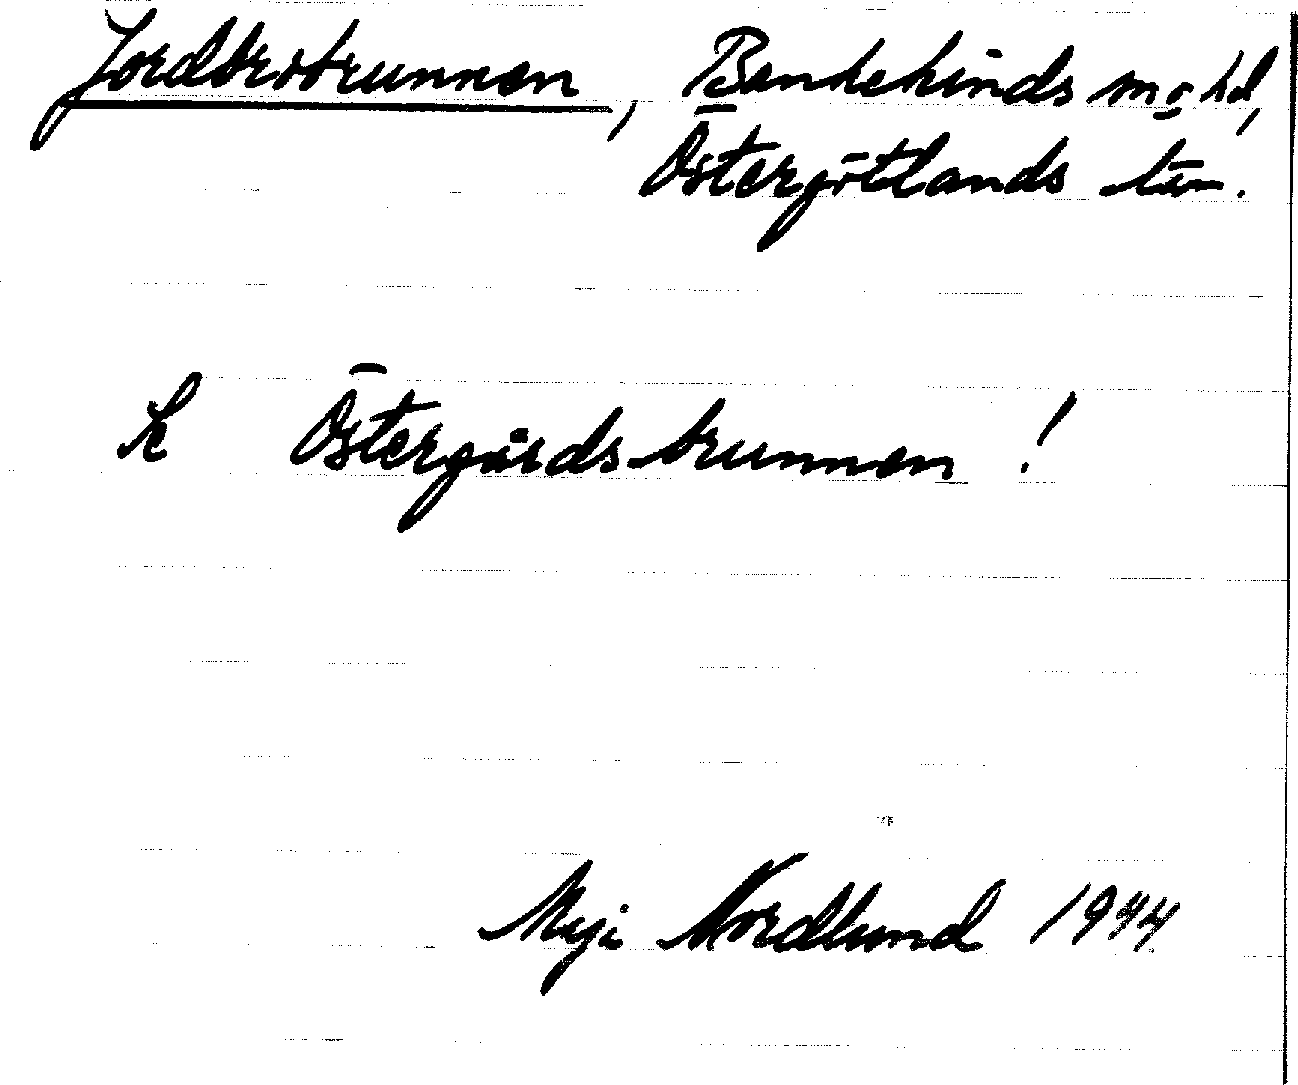 Jordbrobrunnen, Bankekinds sn o hd,
Östergötlands län.
K Östergårdsbrunnen!
Meji Nordlund 1944